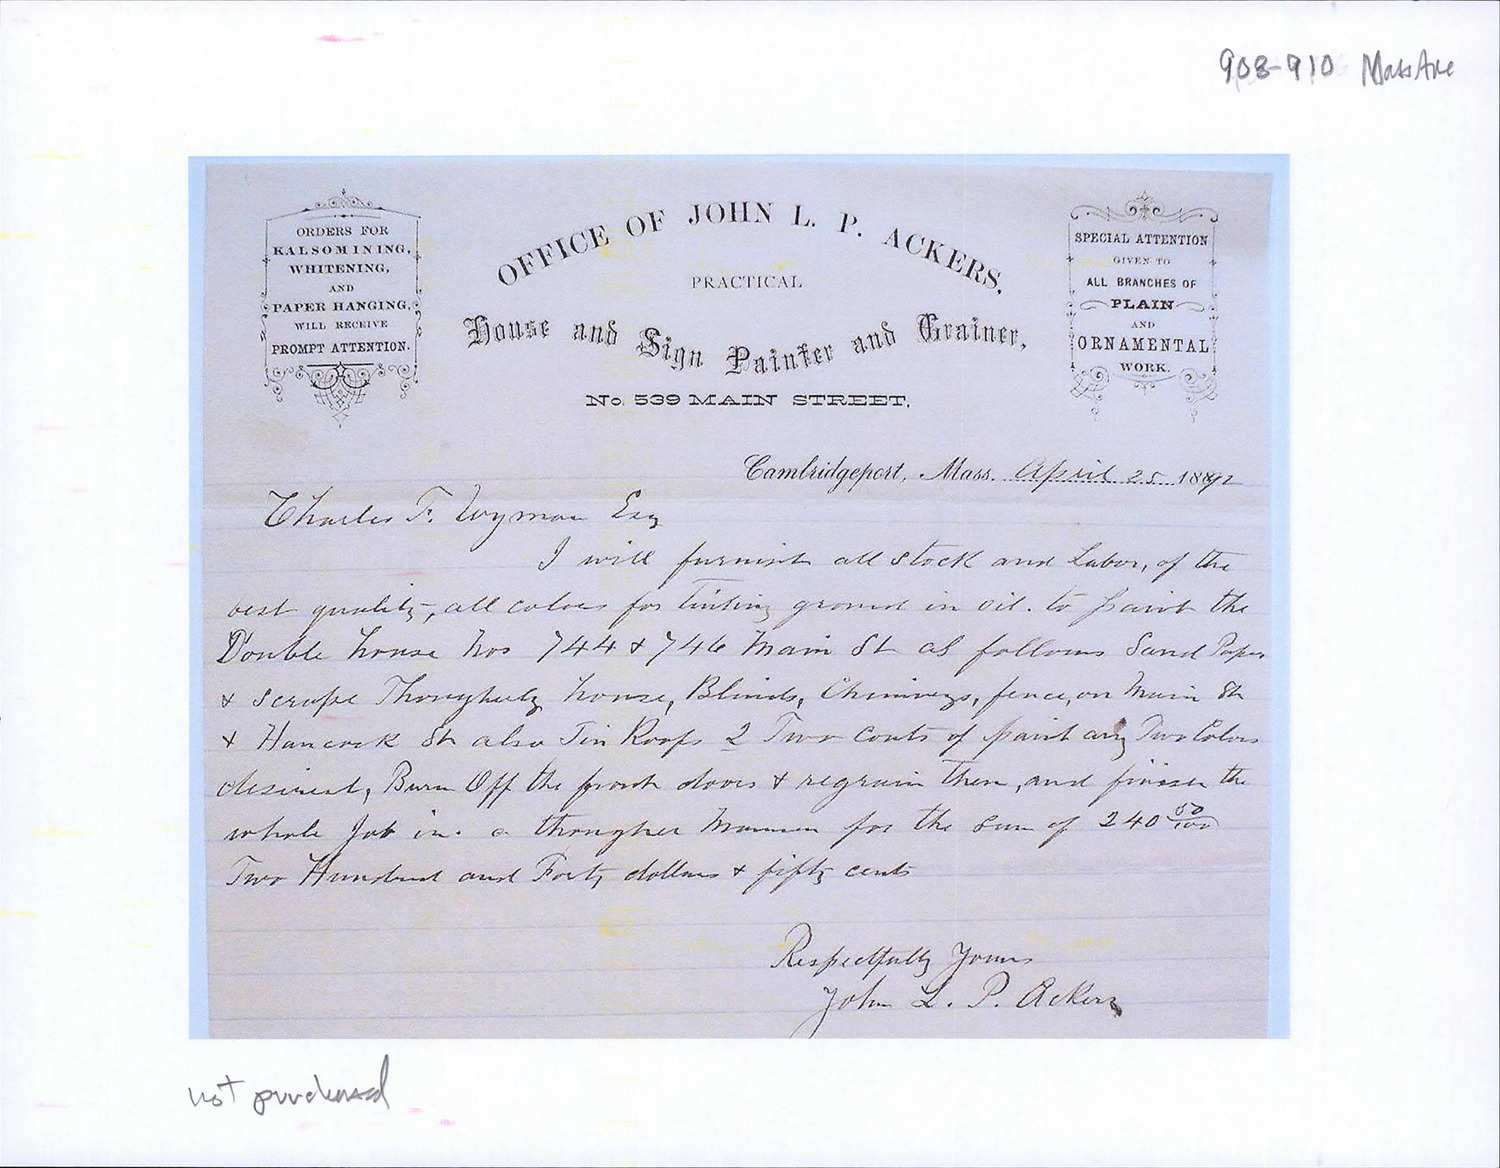 908-910 Mass Ave
ORDERS FOR
KALSOMINING,
WHITENING,
AND
PAPER HANGING,
WILL RECEIVE
PROMPT ATTENTION.
OFFICE OF JOHN L. P. ACKERS,
PRACTICAL
House and Sign Painter and Grainer,
No. 539 MAIN STREET,
SPECIAL ATTENTION
GIVEN TO
ALL BRANCHES OF
PLAIN
AND
ORNAMENTAL
WORK.
Cambridgeport, Mass. April 25 1892
Charles F. Wyman Esq
I will furnish all stock and Labor, of the
best quality, all colors for Tinting ground in oil. to paint the
Double house Nos 744 & 746 Main St as follows Sand Paper
& scrape Thoroughly house, Blinds, Chimneys, fence, on Main St
& Hancock St also Tin Roofs 2 Two Coats of paint any Two Colors
desired, Burn Off the front doors & regrain them, and finish the
whole Job in. a thorougher Manner for the sum of 240 50/100
Two Hundred and Forty dollars & fifty cents
Respectfully Yours
John L. P. Ackers
not purchased